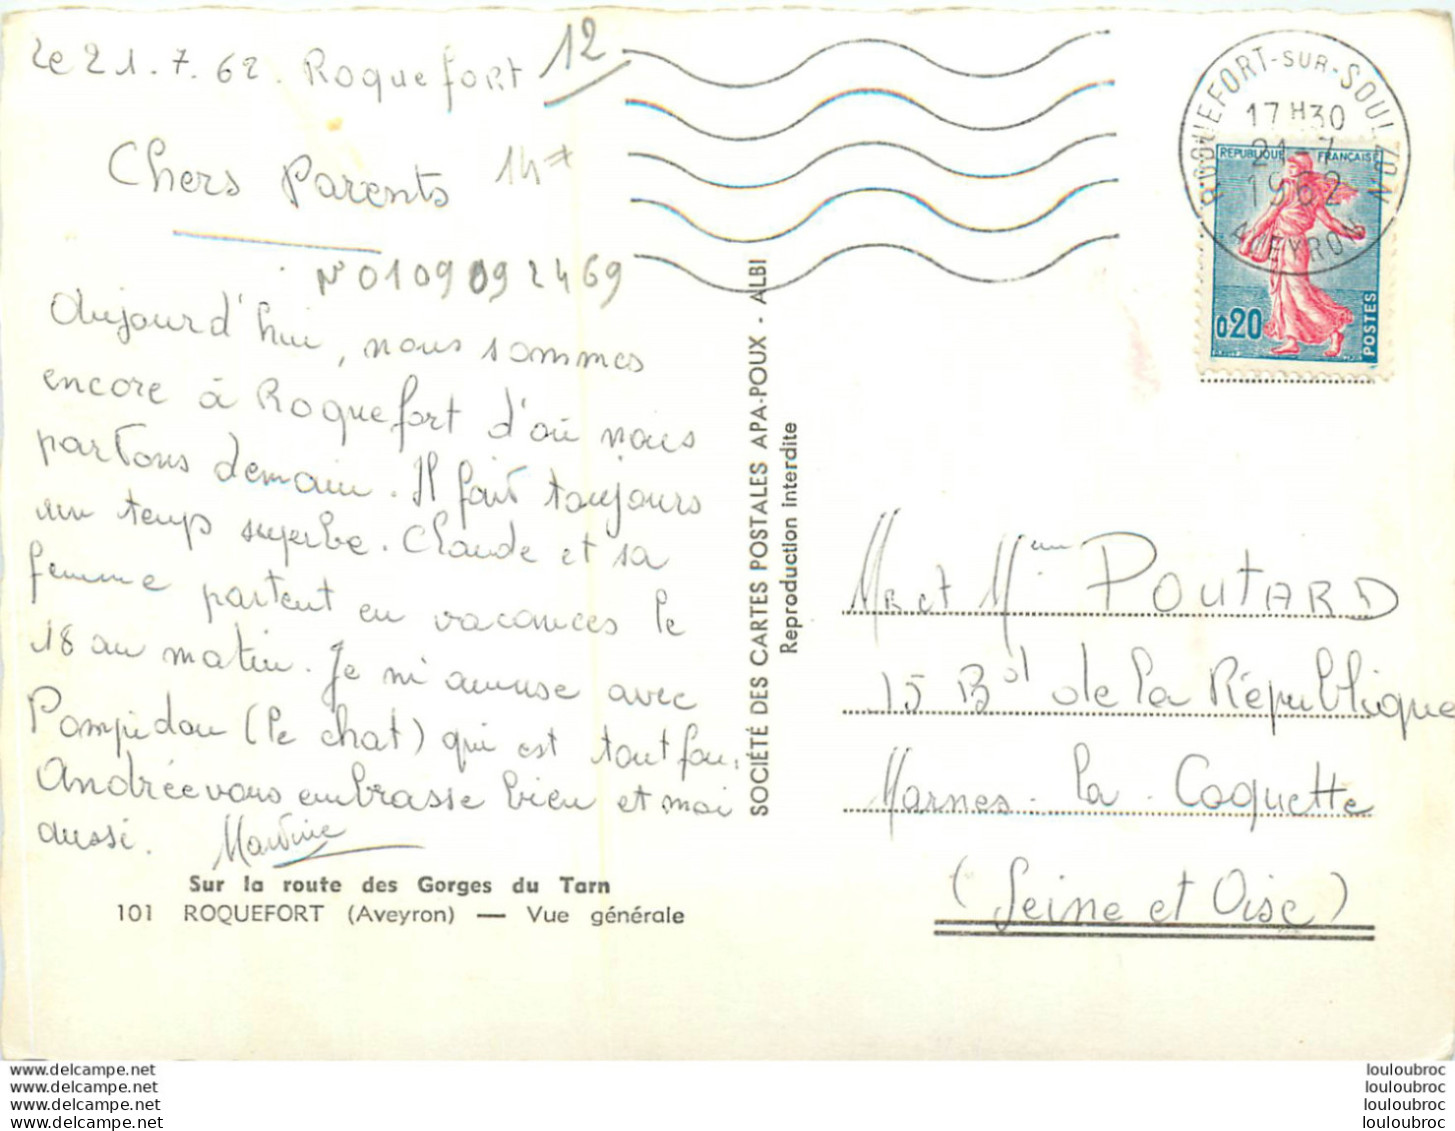 Le 21.7.62. Roquefort
12
Chers Parents
14+
N° 0109092469
Aujourd'hui, nous sommes
encore à Roquefort d'où nous
partons demain. Il fait toujours
un temps superbe. Claude et sa
femme partent en vacances le
18 au matin. Je m'amuse avec
Pompidou (le chat) qui est tout fou.
Andrée vous embrasse bien et moi
aussi. Martine
Sur la route des Gorges du Tarn
101 ROQUEFORT (Aveyron) — Vue générale
SOCIÉTÉ DES CARTES POSTALES APA-POUX - ALBI
Reproduction interdite
ROQUEFORT-SUR-SOULZON
17 H 30
21 - 7
1962
AVEYRON
REPUBLIQUE FRANÇAISE
0,20
POSTES
Mr et Mme POUTARD
15 Bd de la République
Marnes-la-Coquette
(Seine et Oise)
www.delcampe.net
www.delcampe.net
www.delcampe.net
www.delcampe.net
louloubroc
louloubroc
louloubroc
louloubroc